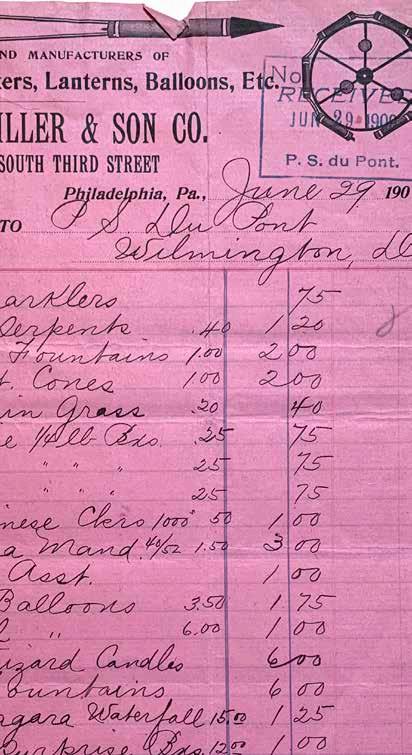 ND MANUFACTURERS OF
kers, Lanterns, Balloons, Etc.
ILLER & SON CO.
SOUTH THIRD STREET
No.
RECEIVED
JUN 29 1906
P. S. du Pont.
Philadelphia, Pa., June 29 190
TO P. S. Du Pont
Wilmington, D
arklers 75
Serpents .40 1 20
Fountains 1.00 2 00
t. Cones 1.00 2 00
in Grass .20 40
e 1/4 lb Bxs. .25 75
" " " 25 75
" " " 25 75
nese Ckrs 1000s 50 1 00
a Mand. 40/52 1.50 3 00
Asst. 1 00
Balloons 3.50 1 75
l " 6.00 1 00
izard Candles 6 00
ountains 6 00
agara Waterfall 15.00 1 25
urprise Bxs. 12.00 1 00